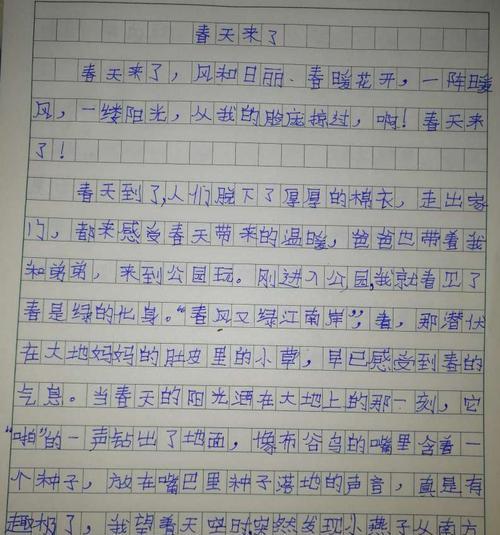 春天来了
春天来了，风和日丽、春暖花开，一阵暖
风，一缕阳光，从我的脸庞掠过，啊！春天来
了！
春天到了,人们脱下了厚厚的棉衣，走出家
门，都来感受春天带来的温暖，爸爸也带着我
和弟弟，来到公园玩。刚进入公园,我就看见了
春是绿的化身。“春风又绿江南岸”,看，那潜伏
在大地妈妈的肚皮里的小草，早已感受到春的
气息。当春天的阳光洒在大地上的那一刻，它
“啪”的一声钻出了地面，像布谷鸟的嘴里含着一
个种子，放在嘴巴里种子落地的声音，真是有
趣极了，我望着天空时,突然发现小燕子从南方